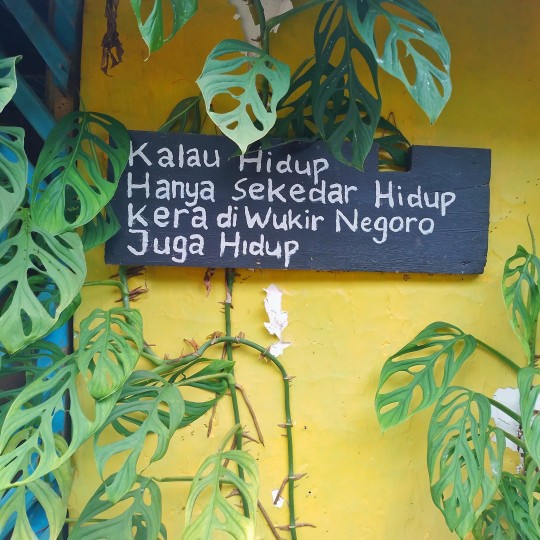 Kalau Hidup
Hanya sekedar Hidup
Kera di Wukir Negoro
Juga Hidup